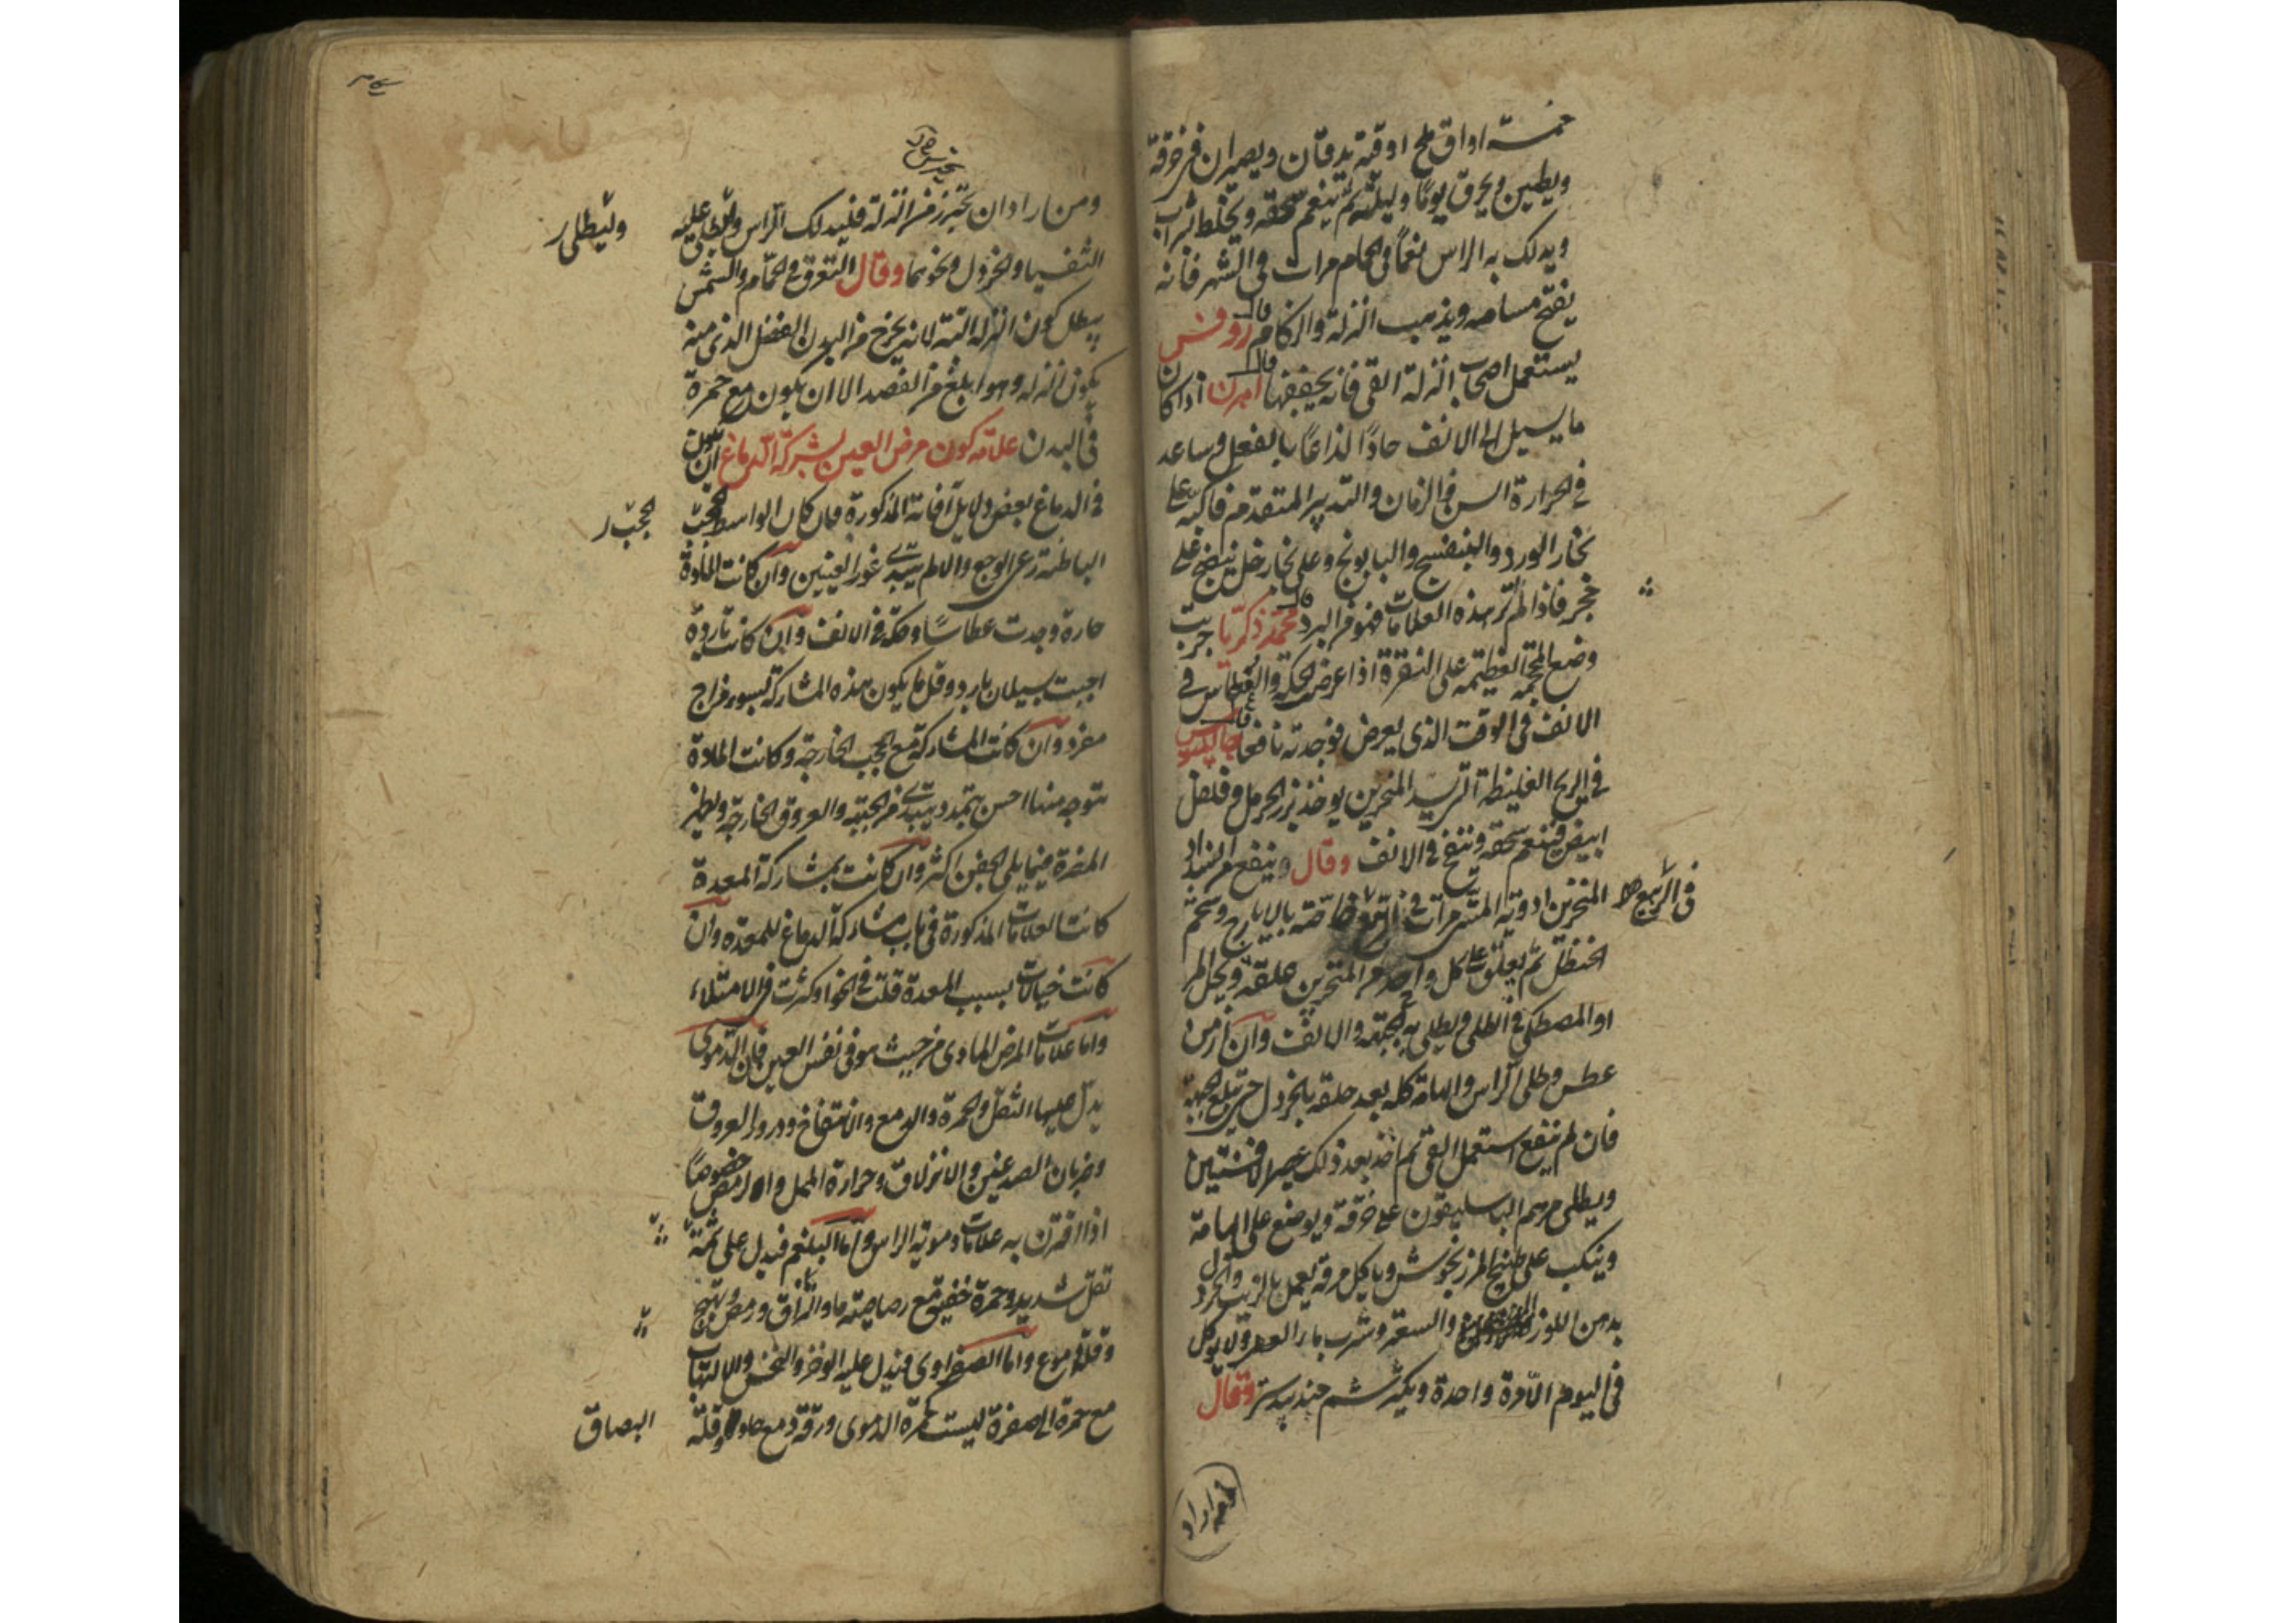 خمسة اواق ملح اوقية يدقان ويصيران في خرقة
ويطين ويحرق يومًا وليلة ثم ينعم سحقه ويخلط بشراب
ويدلك به الراس نعمًا في الحمام مرات في الشهر فانه
يفتح مسامه ويذهب النزلة والزكام قال روفس
يستعمل اصحاب النزلة القى فانه يجففها قال اهرن اذا كان
ما يسيل الى الانف حادًا لذاعًا بالفعل وساعد
في الحرارة السن والزمان والتدبير المتقدم فاكبه على
بخار الورد والبنفسج والبابونج وعلى بخار خل ينضح على
حجر فاذا لم تر هذه العلامات فهو من البرد قال محمد زكريا جربت
وضع المحجمة العظيمة على النقرة اذا عرض الحكة والعطاس في
الانف في الوقت الذى يعرض فوجدته نافعا قال جالينوس
في الريح الغليظة التي تسد المنخرين يوخذ بزر الحرمل وفلفل
ابيض فينعم سحقه وينفخ في الانف وقال وينفع من انسداد
المنخرين ادوية المشى مرات في خاصة بالايارج وشحم
في الربيع
الحنظل ثم يعلق على كل واحد من المنخرين حلقة ويجعل المر
او المصطكى في الطلى ويطلى به الجبهة والانف وان ازمن
عطس وطلى الراس والهامة كله بعد حلقه بالخردل حتى تبلغ الجبهة
فان لم ينفع استعمل القى ثم خذ بعد ذلك عصير الافسنتين
ويطلى مرهم الباسليقون على خرقة ويوضع على الهامة
وينكب على طبيخ المرزنجوش وياكل مرقه يعمل بالزيت والخردل
بدهن اللوز والسعتر وشرب ماء العسل ولا يوكل
في اليوم الا مرة واحدة ويكثر شم جندبيدستر وقال
ومن اراد ان يحترز من النزلة فليدلك الراس وليطلى عليه
وليطلى
الثفسيا والخردل ونحوهما وقال التعرق في الحمام والشمس
يبطل كون النزلة البتة لانه يخرج من البدن الفضل الذى منه
يكون النزلة وهو ابلغ من الفصد الا ان يكون مع حمرة
في البدن علامة كون مرض العين بشركة الدماغ ان يكون
في الدماغ بعض دلايل آفاته المذكورة فان كان الواسط الحجب
الحجب
الباطنة ترى الوجع والالم يبتدى غور العينين وان كانت المادة
حارة وجدت عطاسًا وحكة في الانف وان كانت باردة
احست بسيلان بارد وقل ما يكون هذه المشاركة بسوء مزاج
مفرد وان كانت المشاركة مع الحجب الخارجة وكانت المادة
تتوجه منها احس بتمدد يبتدى من الجبهة والعروق الخارجة ويظهر
المضرة فيما يلى الجفن اكثر وان كانت بمشاركة المعدة
كانت العلامات المذكورة في باب مشاركة الدماغ للمعدة وان
كانت خيالات بسبب المعدة قلت في الخوا وكثرت في الامتلاء
واما علامات المرض المادى من حيث هو في نفس العين فان الدموى
يدل عليها الثقل والحمرة والدمع والانتفاخ ودرور العروق
وضربان الصدغين والالتزاق وحرارة الملمس والرمص خصوصًا
اذا اقترن به علامات دموية الراس واما البلغم فيدل على
ثقل شديد وحمرة خفيفة مع رصاصية ما والتزاق ورمص وتهيج
وقلة دموع واما الصفراوى فيدل عليه الوخز والنخس والالتهاب
مع حمرة الى صفرة ليست كحمرة الدموى ورقة دمع حاد وقلة
البصاق